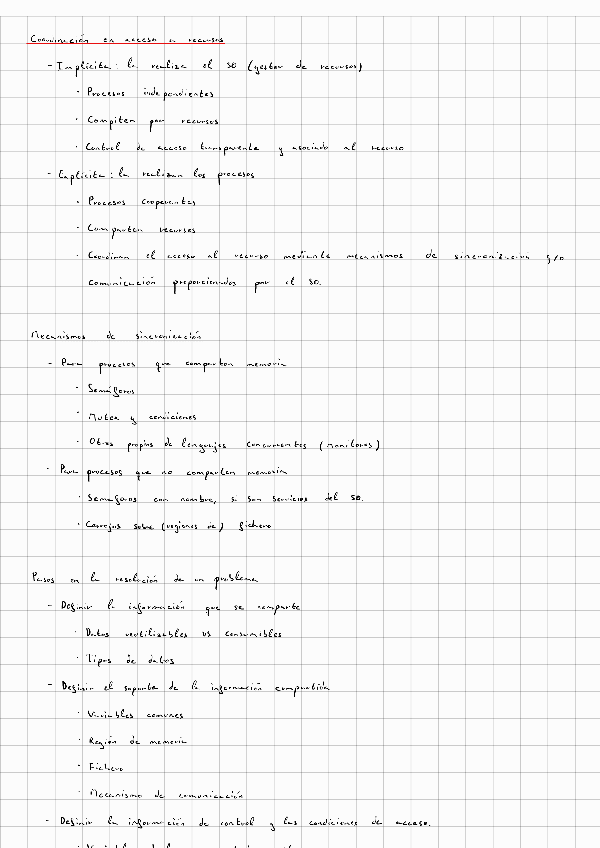 Coordinación en acceso a recursos
- Implícita: la realiza el SO (gestor de recursos)
· Procesos independientes
· Compiten por recursos
· Control de acceso transparente y asociado al recurso
- Explícita: la realizan los procesos
· Procesos cooperantes
· Comparten recursos
· Coordinan el acceso al recurso mediante mecanismos de sincronización y/o
comunicación proporcionados por el SO.
Mecanismos de sincronización
- Para procesos que comparten memoria
· Semáforos
· Mutex y condiciones
· Otros propios de lenguajes concurrentes (monitores)
- Para procesos que no comparten memoria
· Semáforos con nombre, si son servicios del SO.
· Cerrojos sobre (regiones de) fichero
Pasos en la resolución de un problema
- Definir la información que se comparte
· Datos reutilizables vs consumibles
· Tipos de datos
- Definir el soporte de la información compartida
· Variables comunes
· Región de memoria
· Fichero
· Mecanismo de comunicación
- Definir la información de control y las condiciones de acceso.